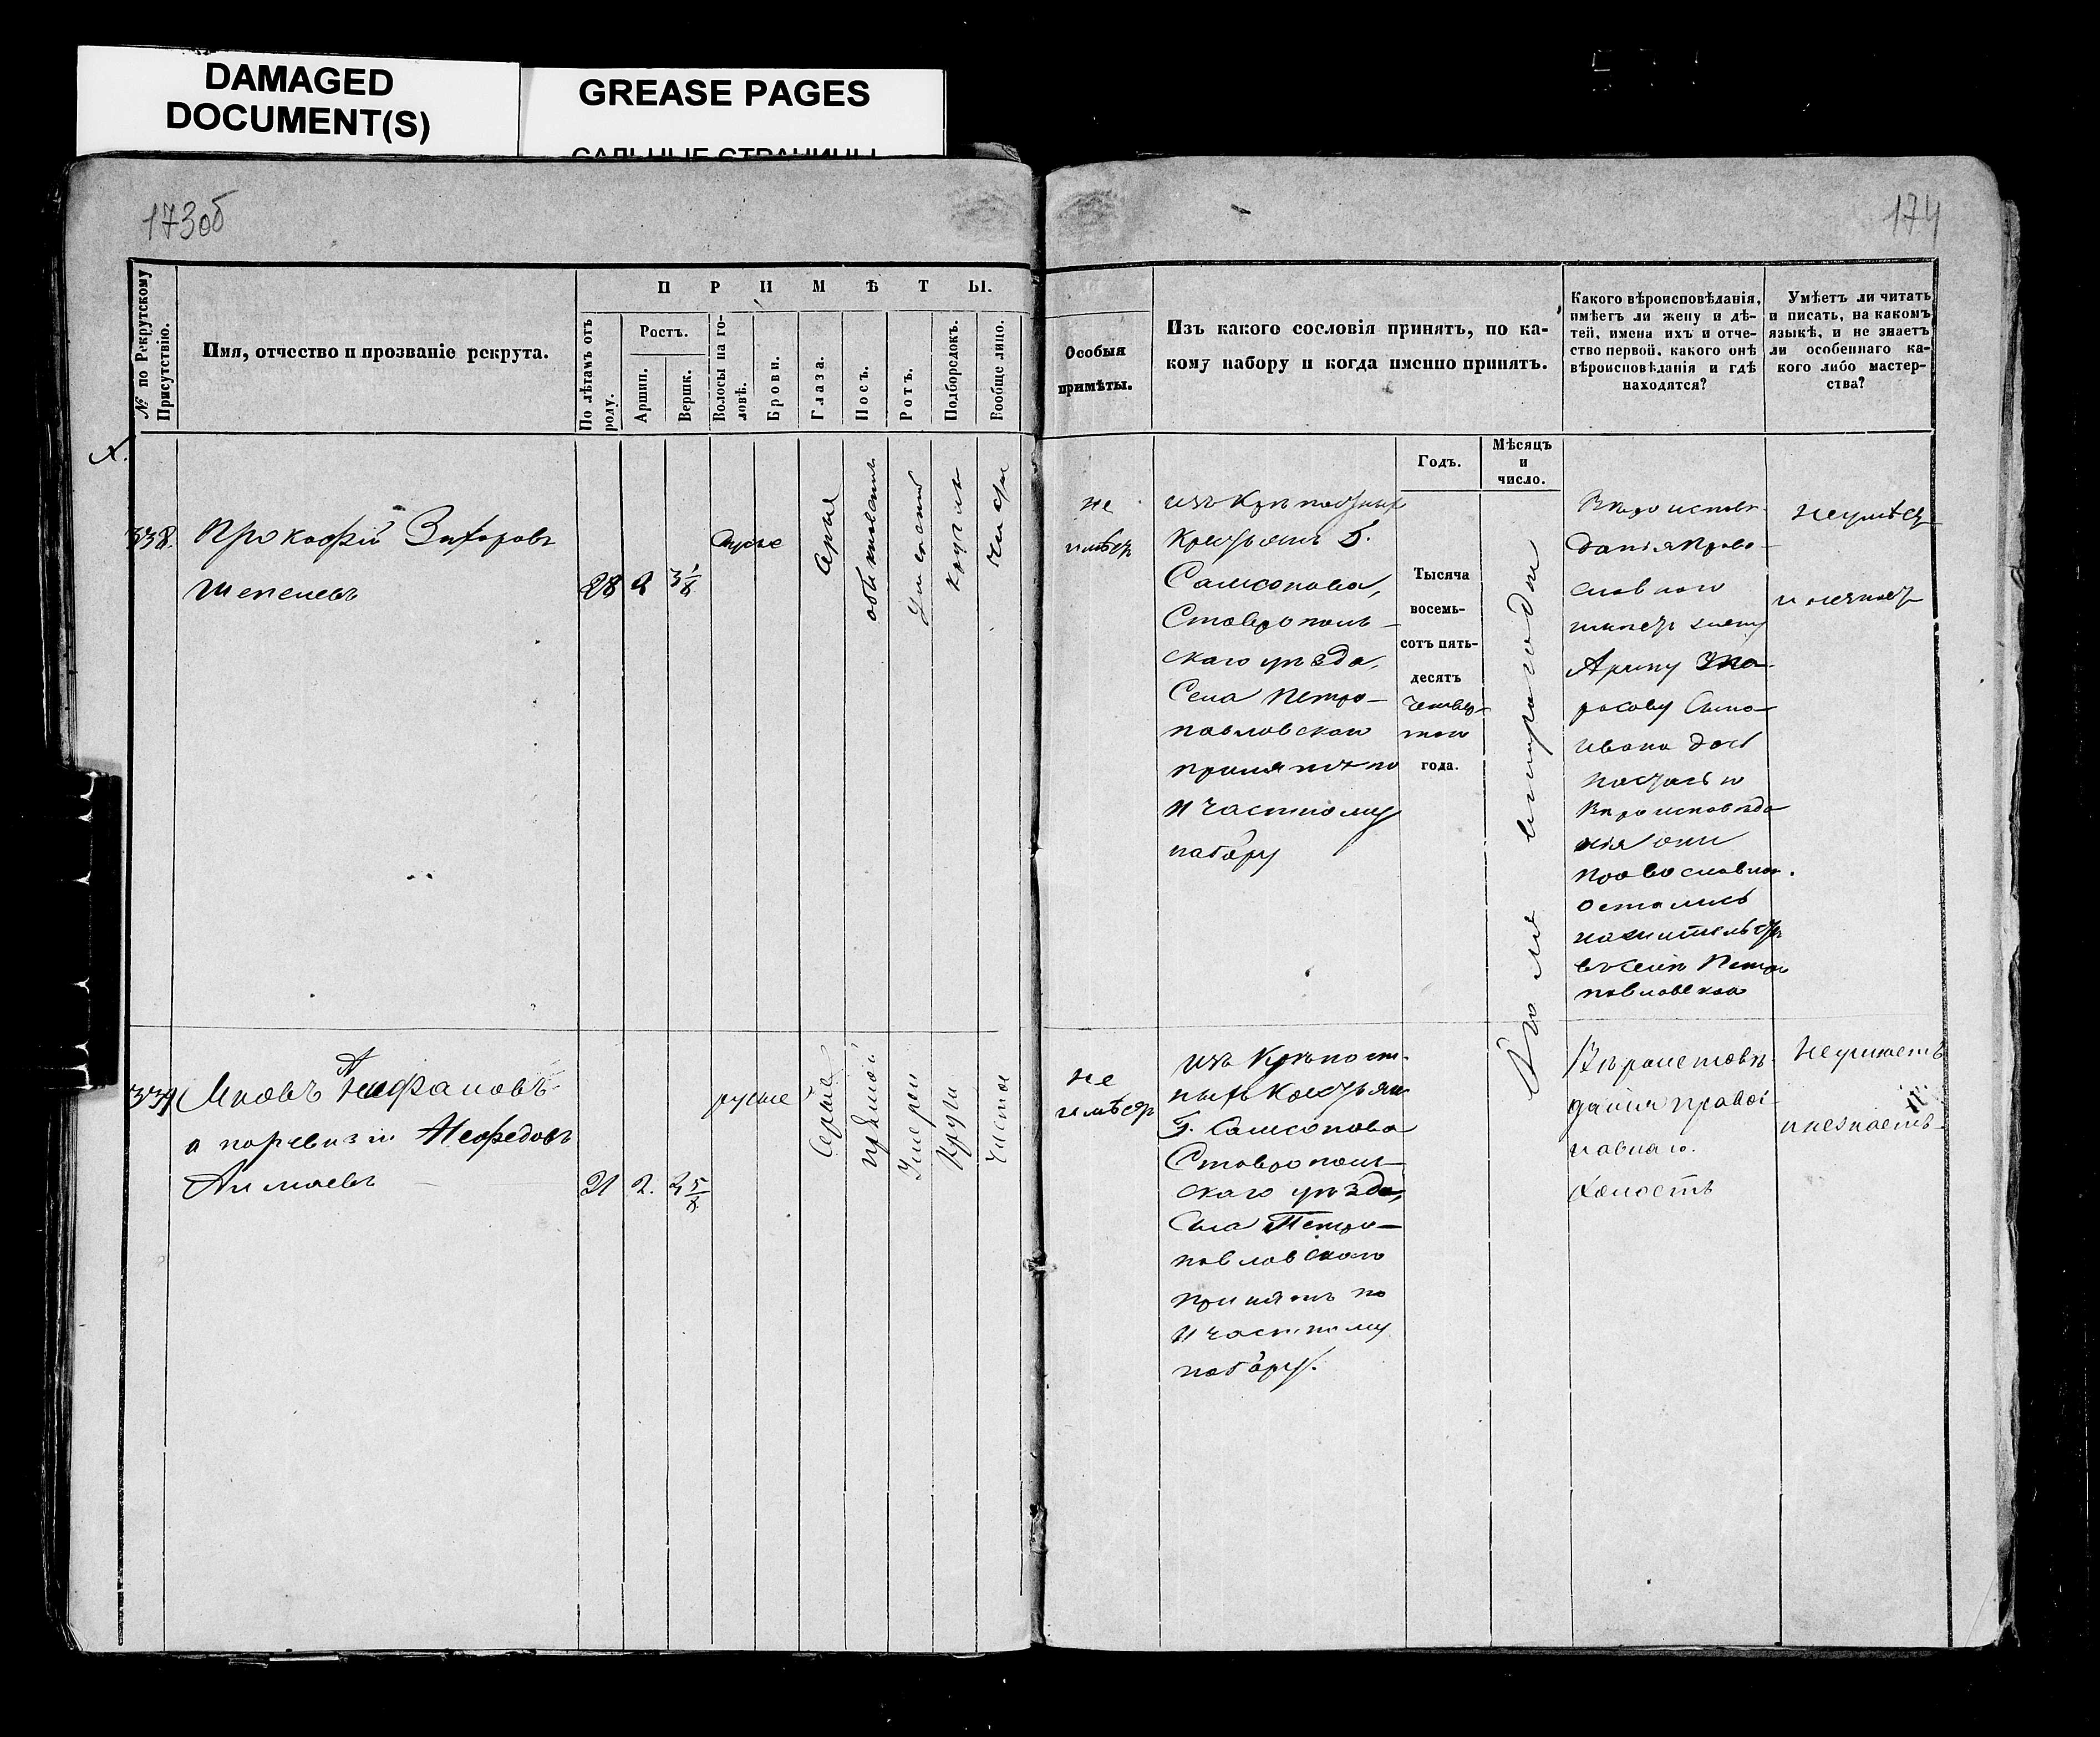 DAMAGED
DOCUMENT(S)
GREASE PAGES
САЛЬНЫЕ СТРАНИЦЫ
173об
174
№ по Рекрутскому
Присутствію.
Имя, отчество и прозваніе рекрута.
П Р И М Ѣ Т Ы.
По лѣтамъ отъ
роду.
Ростъ.
Аршин.
Вершк.
Волосы на го-
ловѣ.
Брови.
Глаза.
Носъ.
Ротъ.
Подбородокъ.
Вообще лицо.
Особыя
примѣты.
Изъ какого сословія принятъ, по ка-
кому набору и когда именно принятъ.
Какого вѣроисповѣданія,
имѣетъ ли жену и дѣ-
тей, имена ихъ и отче-
ство первой, какого онѣ
вѣроисповѣданія и гдѣ
находятся?
Умѣетъ ли читать
и писать, на какомъ
языкѣ, и не знаетъ
ли особеннаго ка-
кого либо мастер-
ства?
Годъ.
Мѣсяцъ
и
число.
338.
Прокофій Захаровъ
Шепелевъ
28 2 3 1/8
русые
серые
обыкновенный
умѣстный
круглый
чистое
не
имѣет
изъ Крѣпостныхъ
Крестьянъ Г.
Самсонова,
Ставрополь-
скаго уѣзда,
Села Петро-
павловскаго
принятъ по
11 частному
набору
Тысяча
восемь-
сотъ пять-
десятъ
четвер-
таго
года.
Вѣроиспове-
данія право-
славнаго
имѣет жену
Арину
Ивана
Вѣроисповѣда
нія они
православнаго.
остались
на жительстве
въ селе Петро
павловскаго
неумѣет
и незнает
339
Яковъ
а поревизіи Нефедовъ
Алмаевъ
21 2. 3 5/8
русые
Серые
прямой
Умерен
Кругл
Чистое
не
имѣет
изъ Крѣпост-
ныхъ Крестьян
Г. Самсонова
Ставрополь-
скаго уѣзда,
Села Петро-
павловскаго
принятъ по
11 частному
набору.
Вѣроисповѣ-
данія правос-
лавнаго.
холостъ
Неумѣетъ
и незнаетъ